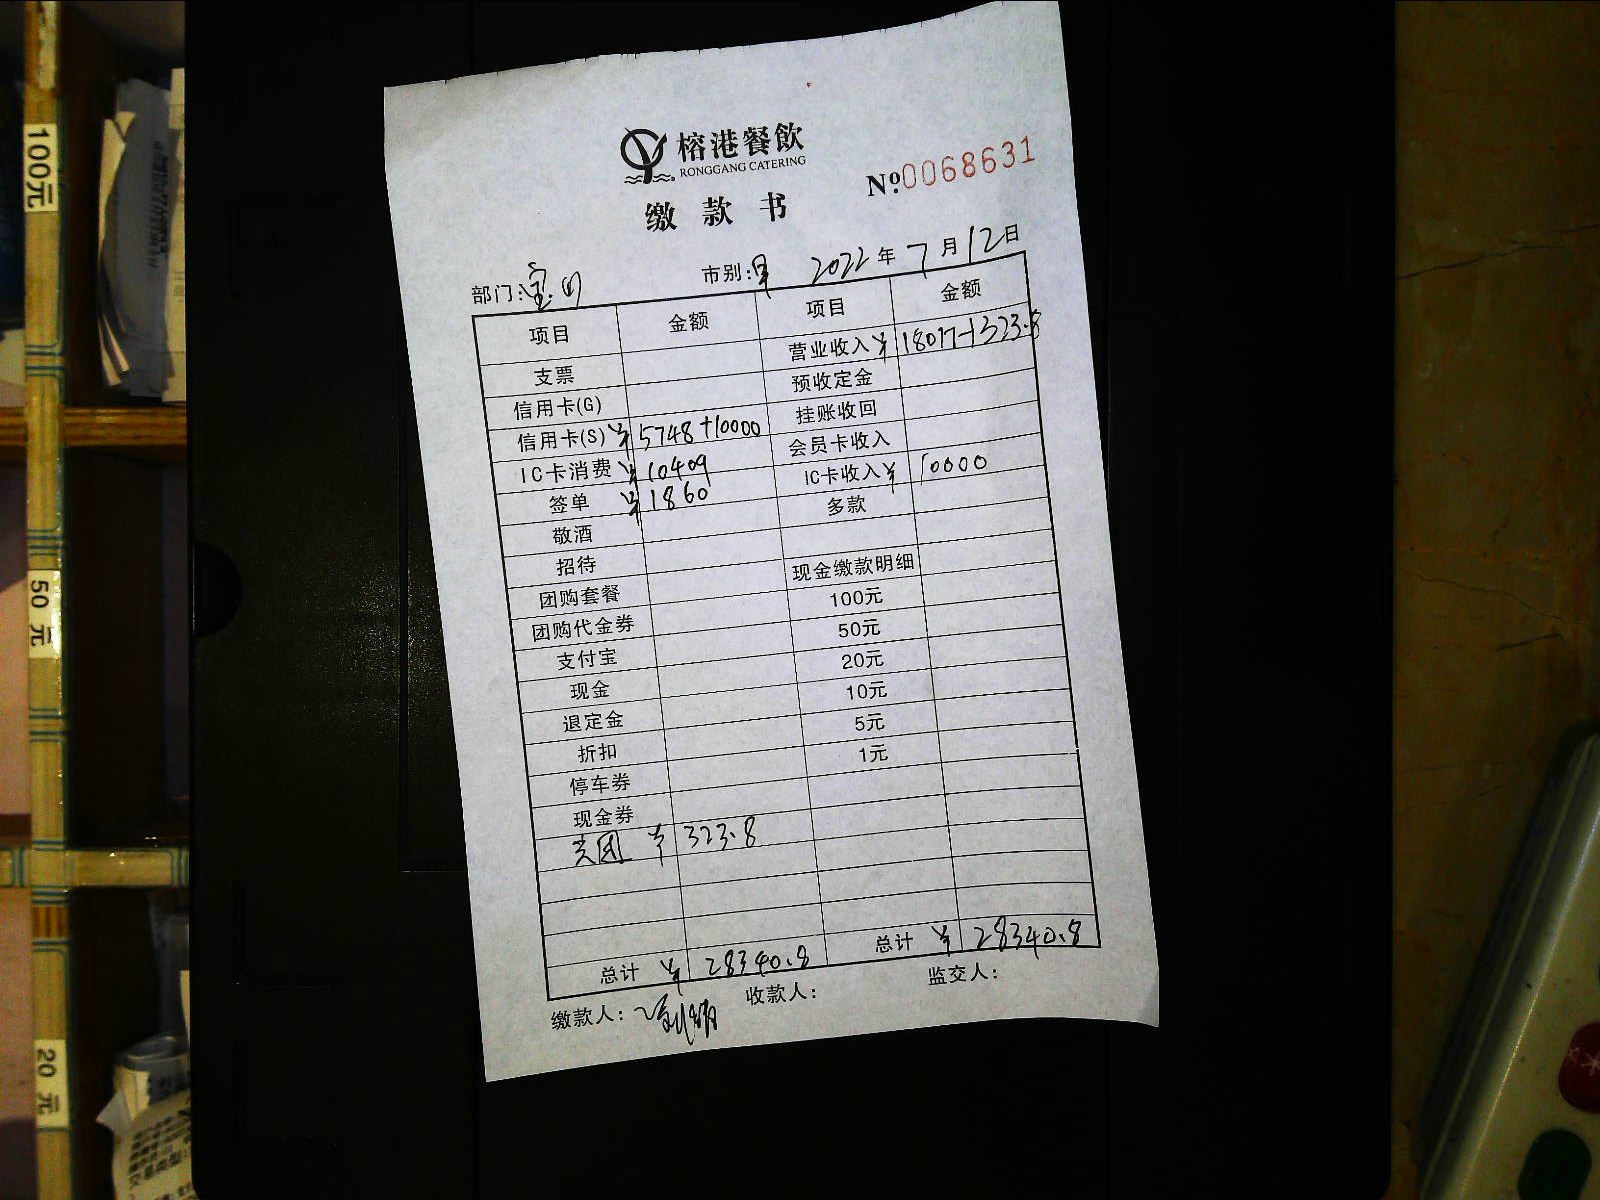 100元
50元
20元
榕港餐飲
RONGGANG CATERING
№0068631
缴款书
部门: 市别: 2022年7月12日
项目 金额 项目 金额
支票 营业收入 ¥18017+323.8
信用卡(G) 预收定金
信用卡(S) ¥5748+10000 挂账收回
IC卡消费 ¥10409 会员卡收入
签单 ¥1860 IC卡收入 ¥10000
敬酒 多款
招待
团购套餐 现金缴款明细
团购代金券 100元
支付宝 50元
现金 20元
退定金 10元
折扣 5元
停车券 1元
现金券
美团 ¥323.8
总计 ¥28340.8 总计 ¥28340.8
缴款人: 收款人: 监交人: